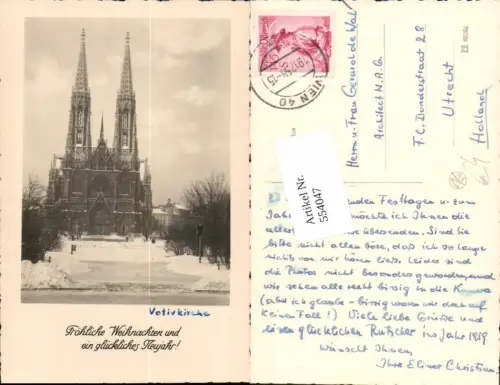 Votivkirche
Fröhliche Weihnachten und
ein glückliches Neujahr!
WIEN 40
Herrn u. Frau Gerard de Wal
Architect N.A.G.
F.C. Donderstraat 28
Utrecht
Holland
Artikel Nr.
554047
Festtagen u. zum
möchte ich Ihnen die
übersenden. Sind Sie
bitte nicht allen böse, daß ich so lange
nichts von mir hören ließ. Leider sind
die Photos nicht besonders geworden, und
wir sehen alle recht bissig in die
(aber ich glaube – bissig waren wir doch auf
keinen Fall!) Viele liebe Grüße und
einen glücklichen Rutscher ins Jahr 1959
wünscht Ihnen,
Ihre